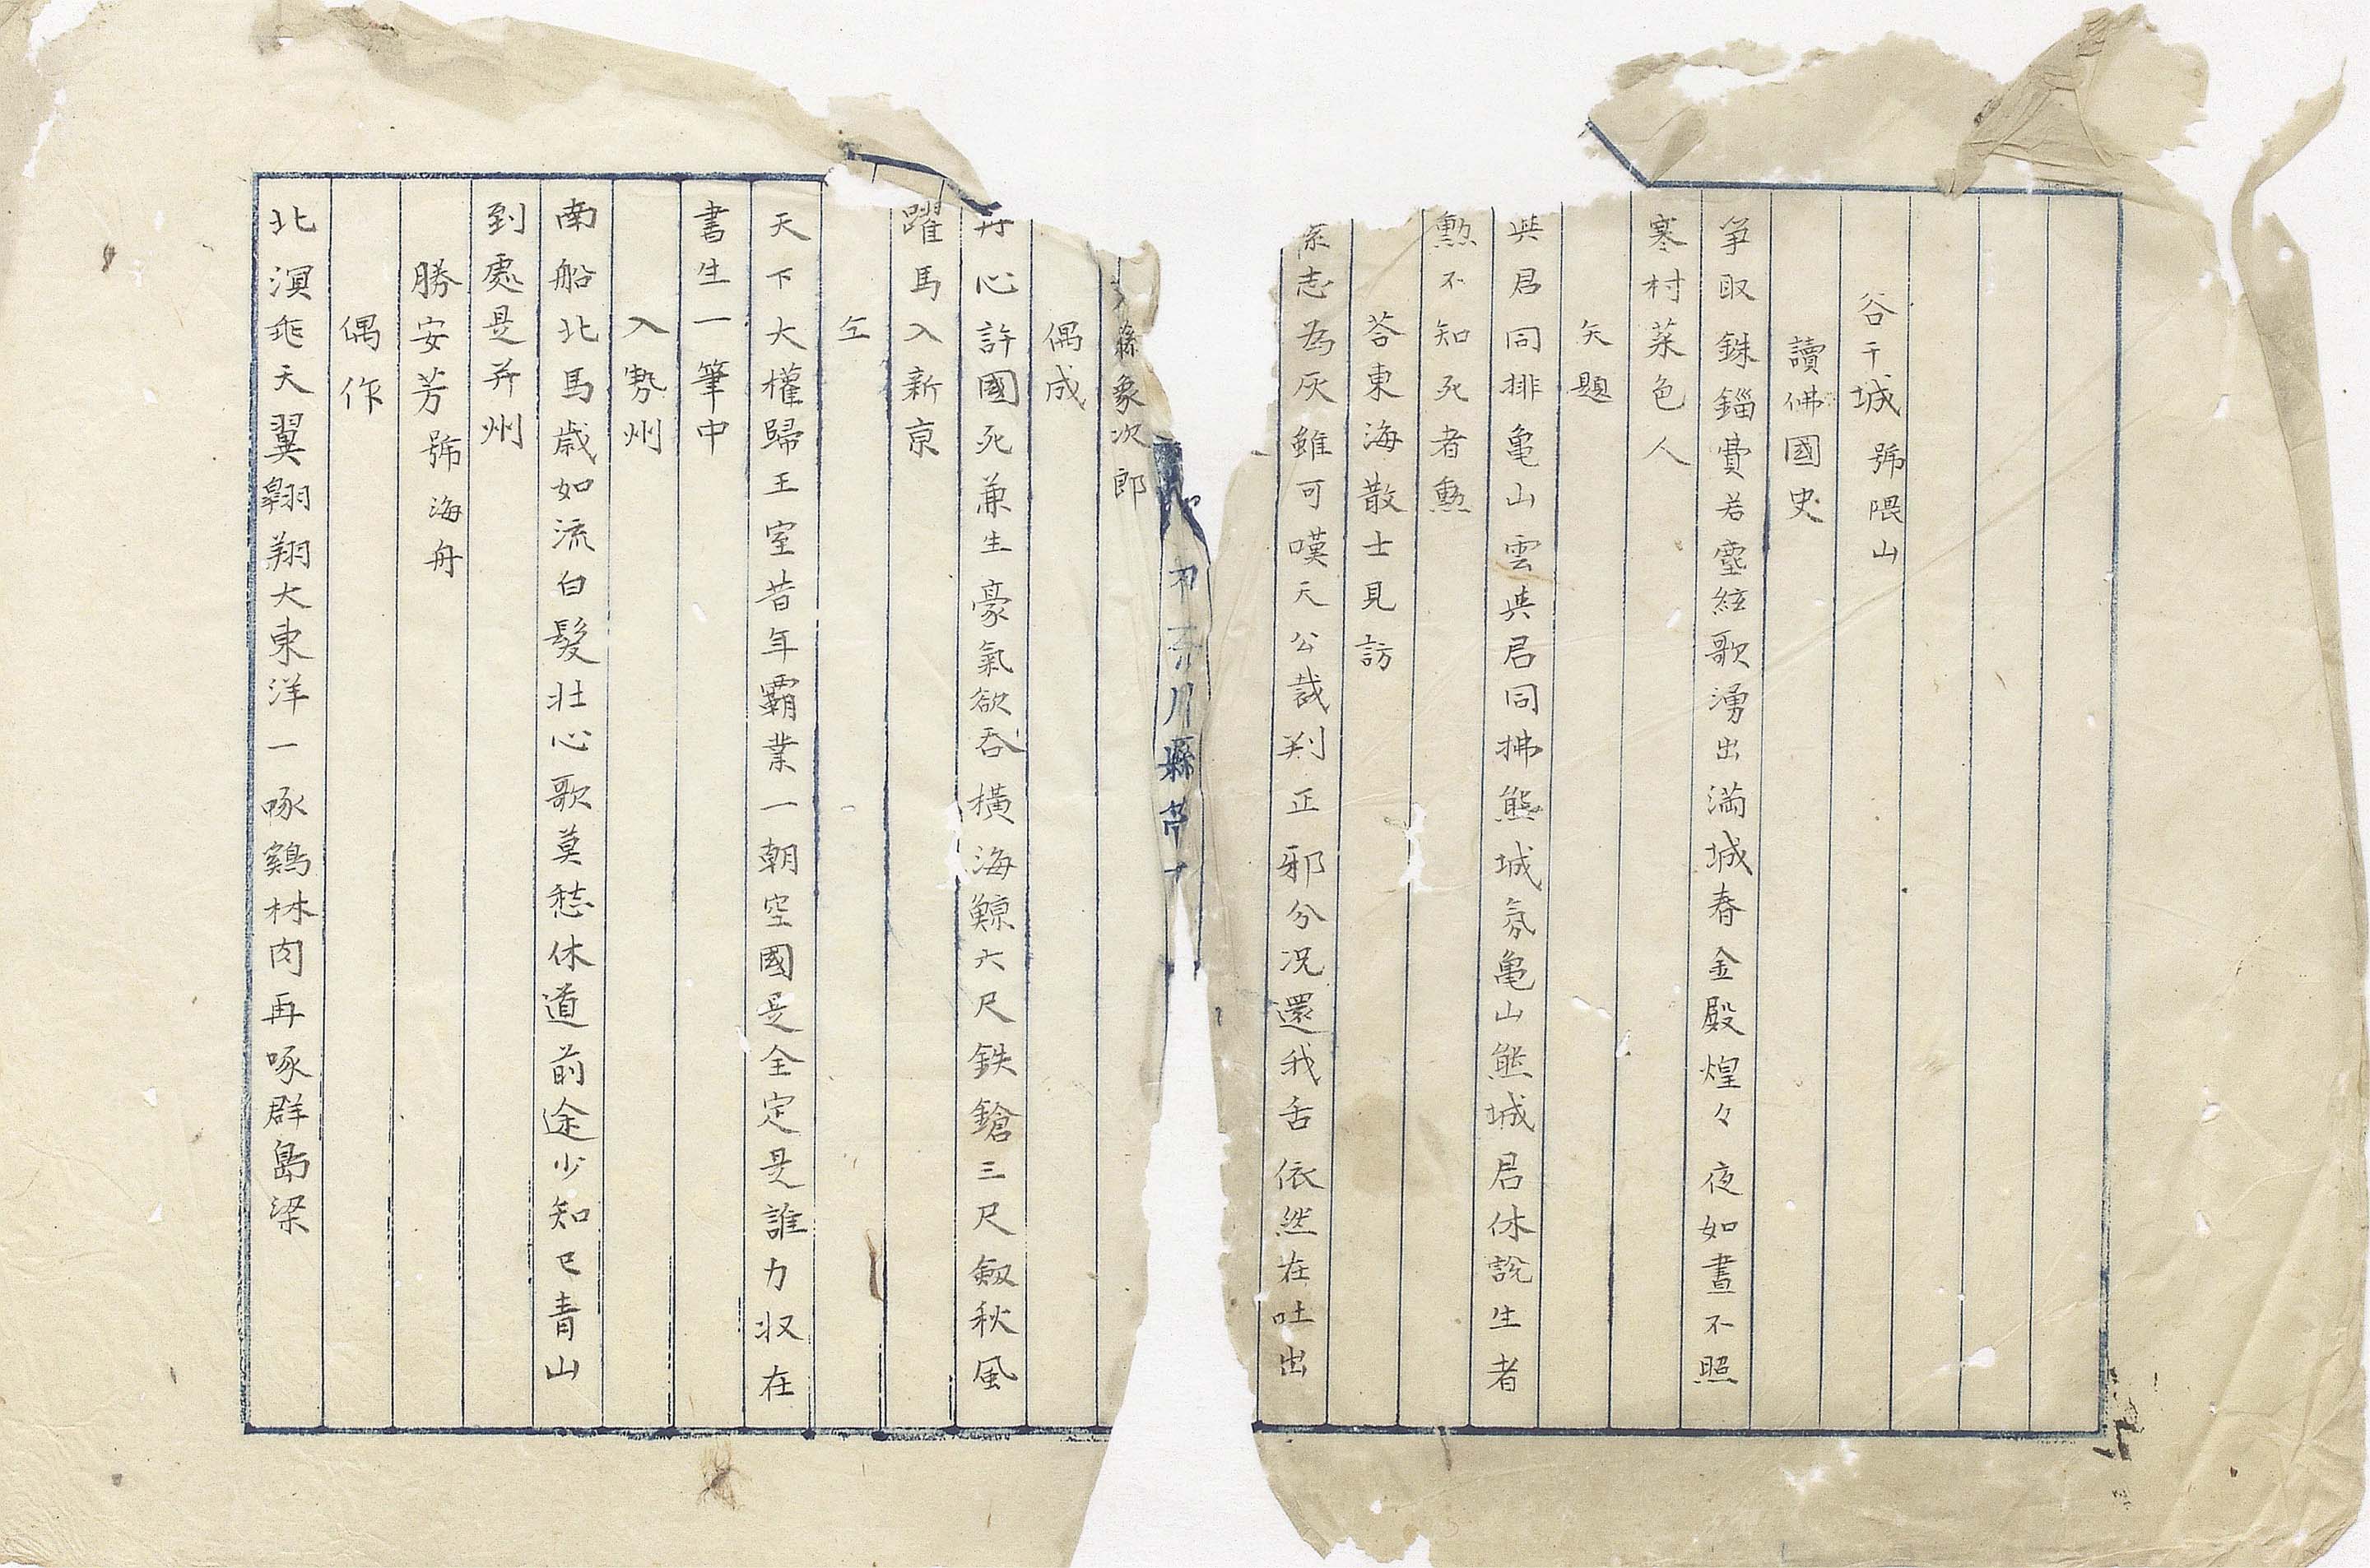 谷干城 號隈山
讀佛國史
爭取銖錙費若塵絃歌湧出満城春金殿煌々夜如晝不照
寒村菜色人
矢題
與君同排亀山雲與君同拂熊城氛亀山熊城君休說生者
勲不知死者勲
荅東海散士見訪
志為灰雖可嘆天公裁判正邪分况還我舌依然在吐出
藤象次郎
偶成
丹心許國死兼生豪氣欲吞橫海鯨六尺鉄鎗三尺劔秋風
躍馬入新京
仝
天下大權歸王室昔年霸業一朝空國是全定是誰力収在
書生一筆中
入勢州
南船北馬歳如流白髮壯心歌莫愁休道前途少知已青山
到處是并州
勝安芳 號海舟
偶作
北溟垂天翼翺翔大東洋一啄鷄林肉再啄群島梁
川縣